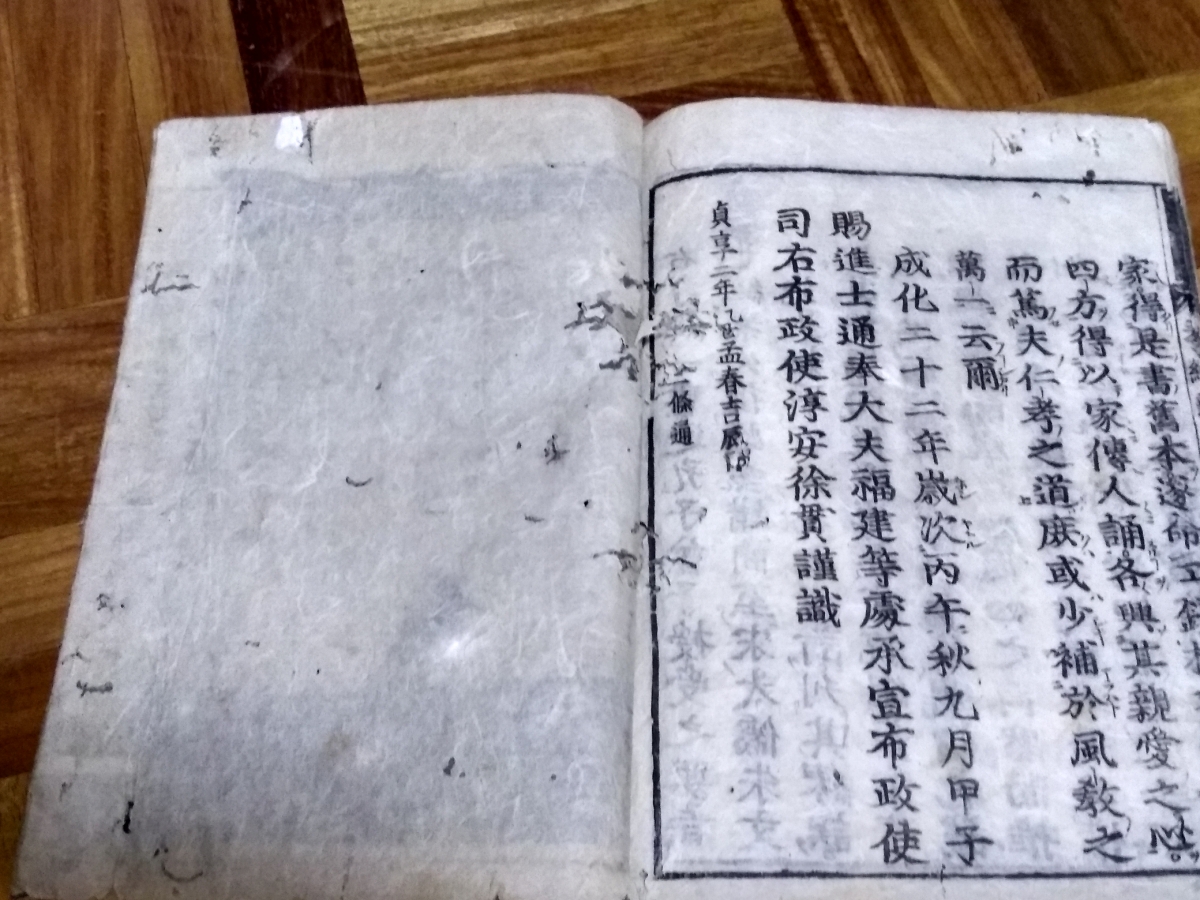 家得是書舊本遂命工
四方得以家傳人誦各興其親愛之心
而篤夫仁孝之道庶或少補於風教之
萬一云爾
成化二十二年歲次丙午秋九月甲子
賜進士通奉大夫福建等處承宣布政使
司右布政使淳安徐貫謹識
貞享二年乙丑孟春吉辰
二條通